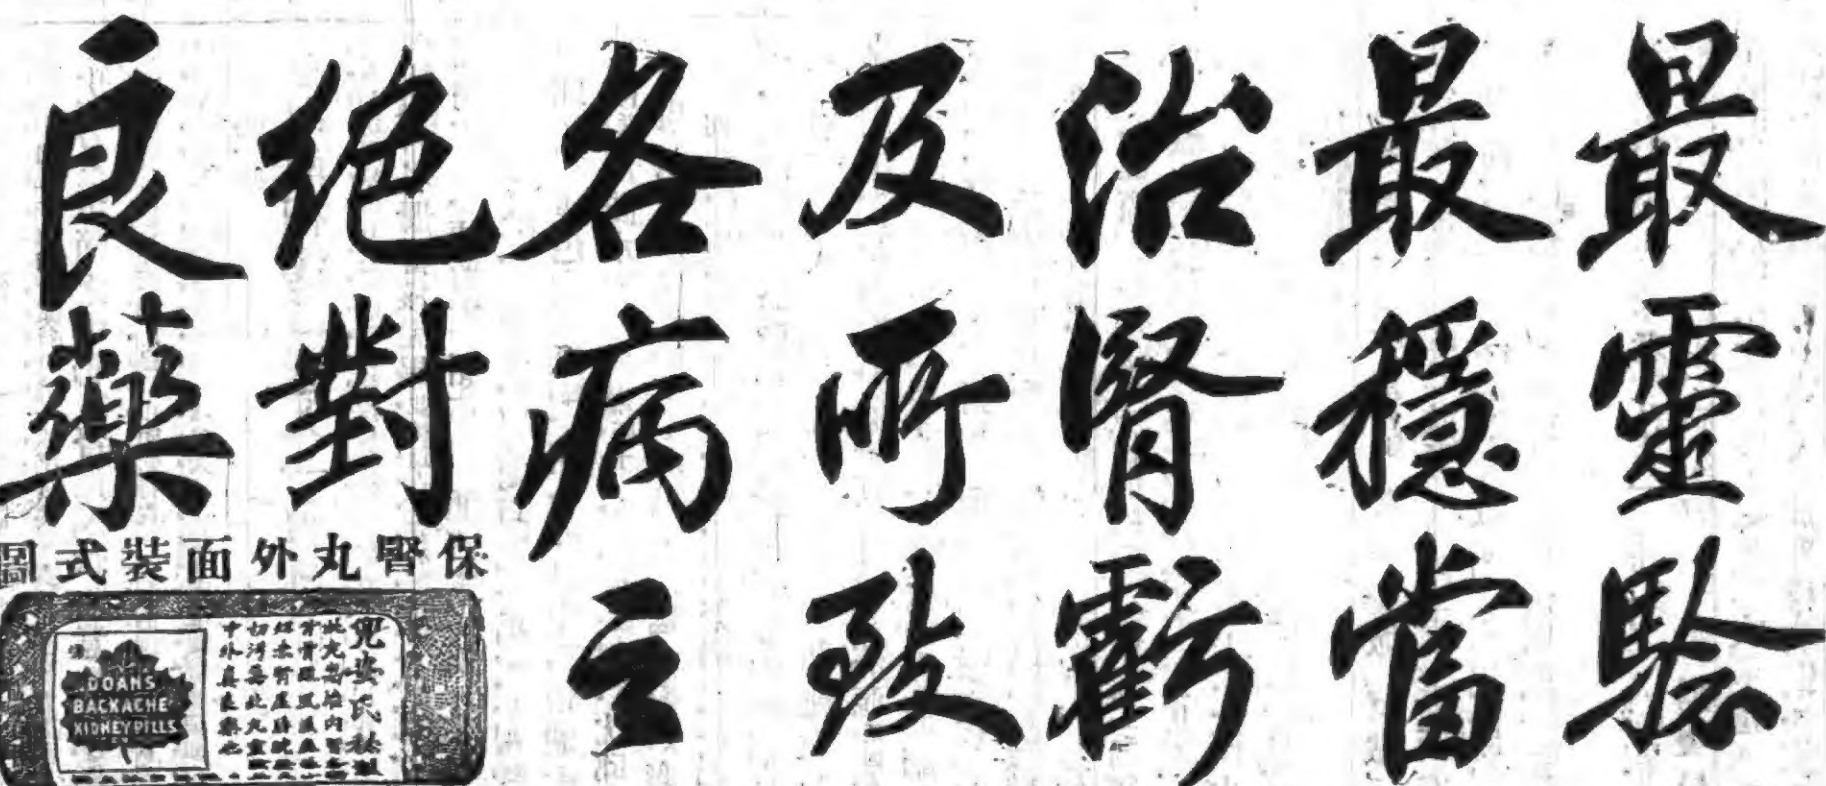 最靈驗
最穩當
治腎虧
及所致
各病之
絕對
良藥
保腎丸外面裝式圖
兜安氏秘製
DOANS
BACKACHE
KIDNEY PILLS